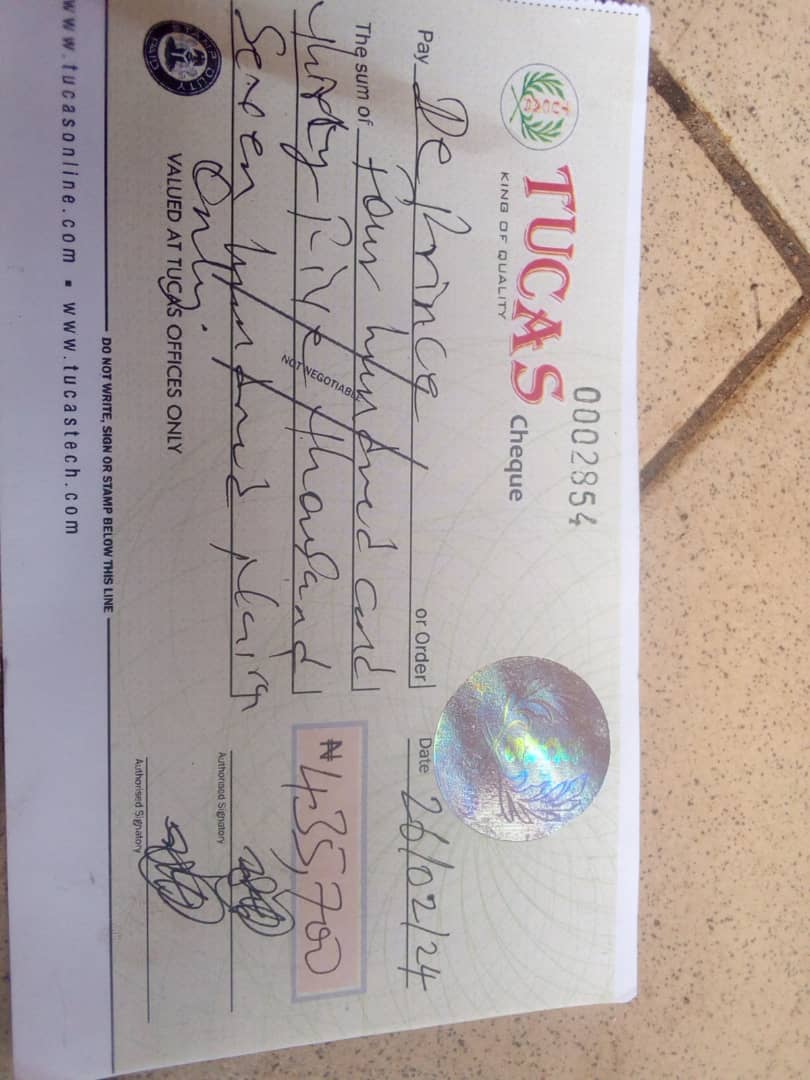 0002854
TUCAS Cheque
KING OF QUALITY
TUCAS
Pay De Prince or Order
Date 26/02/24
The sum of Four hundred and
thirty Five thousand
Seven hundred naira
Only.
₦ 435,700
NOT NEGOTIABLE
Authorised Signatory
Authorised Signatory
STAMP DUTY
VALUED AT TUCAS OFFICES ONLY
DO NOT WRITE, SIGN OR STAMP BELOW THIS LINE
www.tucasonline.com ▪ www.tucastech.com